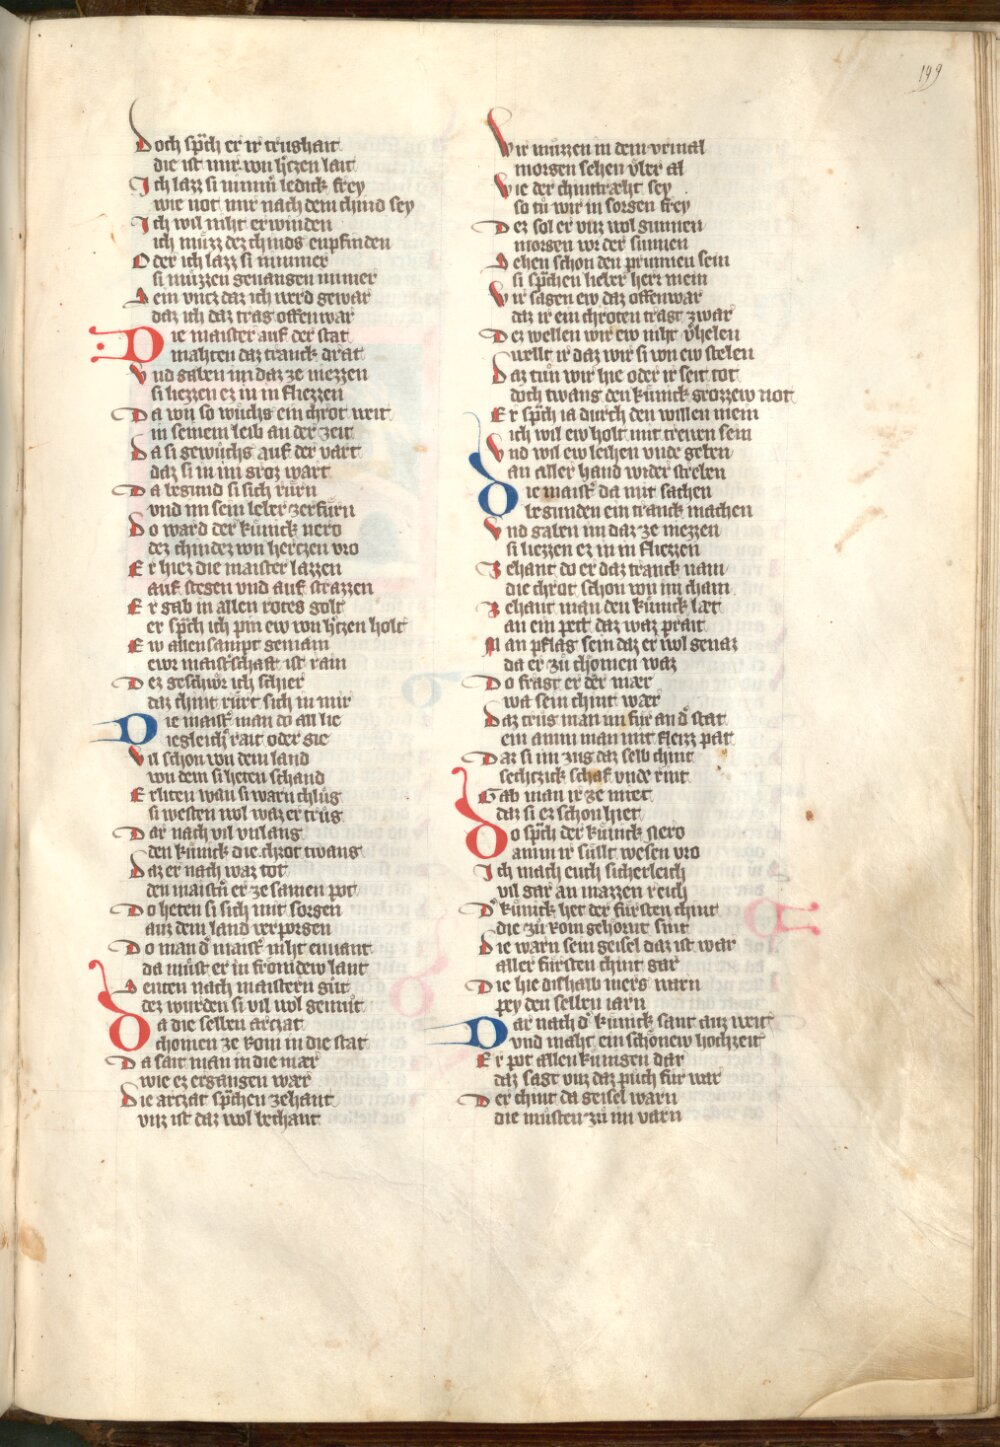 199
Doch sp̄ch er ir trugshait
die ist mir von h̄tzen lait
Ich lazz si nimm̄ ledick frey
wie not mir nach dem chind sey
Ich wil niht erwinden
ich můzz dez chindes enpfinden
Oder ich lazz si nimmer
si můzzen geuangen immer
Sein vncz daz ich werd gewar
daz ich daz trag offenwar
Die maister auf der stat
mahten daz tranck drat
Vnd gaben im daz ze niezzen
si liezzen ez in in fliezzen
Da von so wůchs ein chrot weit
in seinem leib an der zeit
Da si gewůchs auf der vart
daz si in im groz wart
Da begund si sich růrn
vnd im sein leber zerfůrn
Do ward der kůnick nero
dez chindez von herczen vro
Er hiez die maister lazzen
auf stegen vnd auf strazzen
Er gab in allen rotes golt
er sp̄ch ich pin ew von h̄tzen holt
Ew allen sampt gemain
ewr maist̄schaft ist rain
Dez geschwr ich schier
daz chint růrt sich in mir
Die maist̄ man do all lie
iegleich̄ rait oder gie
Vil schon von dem land
von dem si heten schand
Erliten wan si warn chlůg
si westen wol waz er trůg
Dar nach vil vnlang
den kůnick die chrot twang
Daz er nach waz tot
den maist̄n er ze samen pot
Do heten si sich mit sorgen
auz dem land verporgen
Do man d̄ maist̄ niht enuant
da můst er in frömdew lant
Senten nach maistern gůt
dez wurden si vil wol gemůt
Da die selben arczat
chomen ze Rom in die stat
Da sait man in die mær
wie ez ergangen wær
Die arczat sp̄chen zehant
vnz ist daz wol bechant
Wir můzzen in dem vrinal
morgen sehen v̈ber al
Wie der chinttræht sey
so tů wir in sorgen frey
Dez sol er vnz wol gunnen
morgen vor der sunnen
Sehen schon den prunnen sein
si sp̄chen lieber herr mein
Wir sagen ew daz offenwar
daz ir ein chroten tragt zwar
Dez wellen wir ew niht v̄helen
wellt ir daz wir si von ew stelen
Daz tůn wir hie oder ir seit tot
doch twang den kůnick grozzew not
Er sp̄ch ia durch den willen mein
ich wil ew holt mit trewen sein
Vnd wil ew leihen vnde geben
an aller hand wider streben
Die maist̄ da mit sachen
begunden ein tranck machen
Vnd gaben im daz ze niezzen
si liezzen ez in in fliezzen
Zehant do er daz tranck nam
die chrot schon von im cham
Zehant man den kůnick læt
an ein pett daz waz prait
Man pflag sein daz er wol genaz
da er zů chomen waz
Do fragt er der mær
wa sein chint wær
Daz trůg man im fůr an d̄ stat
ein amm man mit fleizz pat
Daz si im zůg daz selb chint
sechtzick schaf vnde rint
Gab man ir ze miet
daz si ez schon hiet
Do sp̄ch der kůnick Nero
amm ir sůllt wesen vro
Ich mach euch sicherleich
vil gar an mazzen reich
D̄ kůnick het der fůrsten chint
die zů Rom gehörnt sint
Die warn sein geisel daz ist war
aller fůrsten chint gar
Die hie dishalb mers warn
pey den selben iarn
Dar nach d̄ kůnick sant auz weit
vnd maht ein schönew hochzeit
Er pot allen kůnigen dar
daz sagt vnz daz půch fůr war
Der chint da geisel warn
die můsten zů im varn